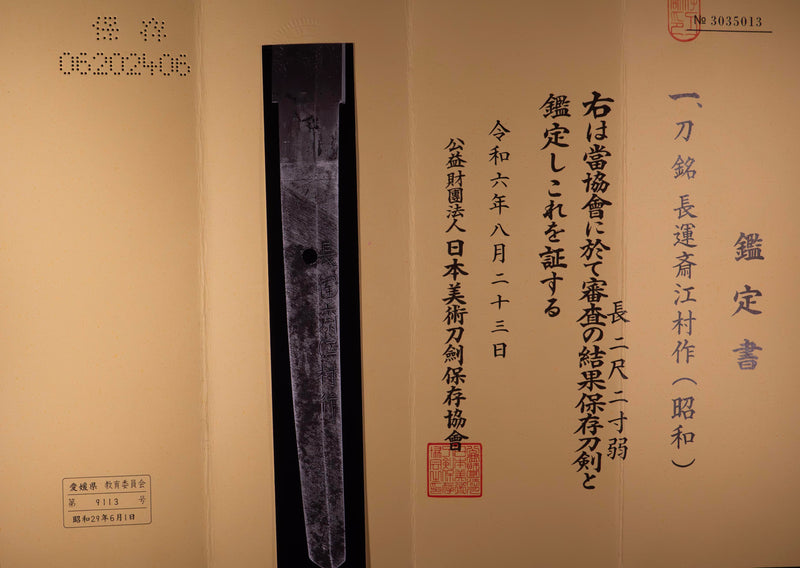 № 3035013
鑑定書
一、刀 銘 長運斎江村作(昭和)
長二尺二寸弱
右は當協會に於て審査の結果保存刀剣と
鑑定しこれを証する
令和六年八月二十三日
公益財團法人 日本美術刀劍保存協會
保存
06202406
長運斎江村作
愛媛県 教育委員会
第 9113 号
昭和29年6月1日